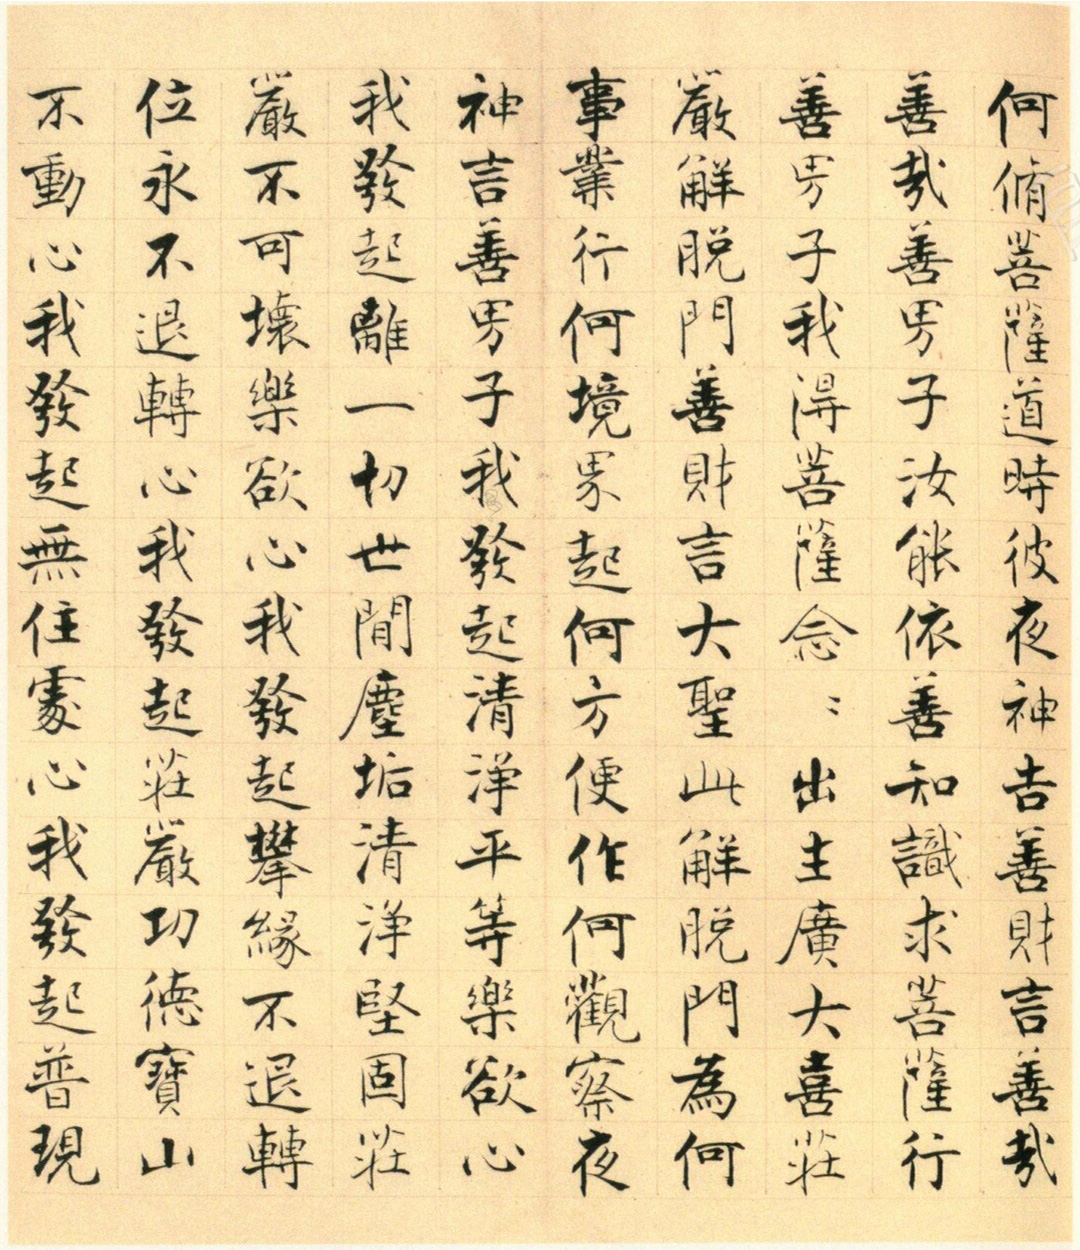 何脩菩薩道時彼夜神告善財言善哉
善哉善男子汝能依善知識求菩薩行
善男子我得菩薩念〻出生廣大喜莊
嚴解脫門善財言大聖此解脫門為何
事業行何境界起何方便作何觀察夜
神言善男子我發起清淨平等樂欲心
我發起離一切世間塵垢清淨堅固莊
嚴不可壞樂欲心我發起攀緣不退轉
位永不退轉心我發起莊嚴功德寶山
不動心我發起無住處心我發起普現